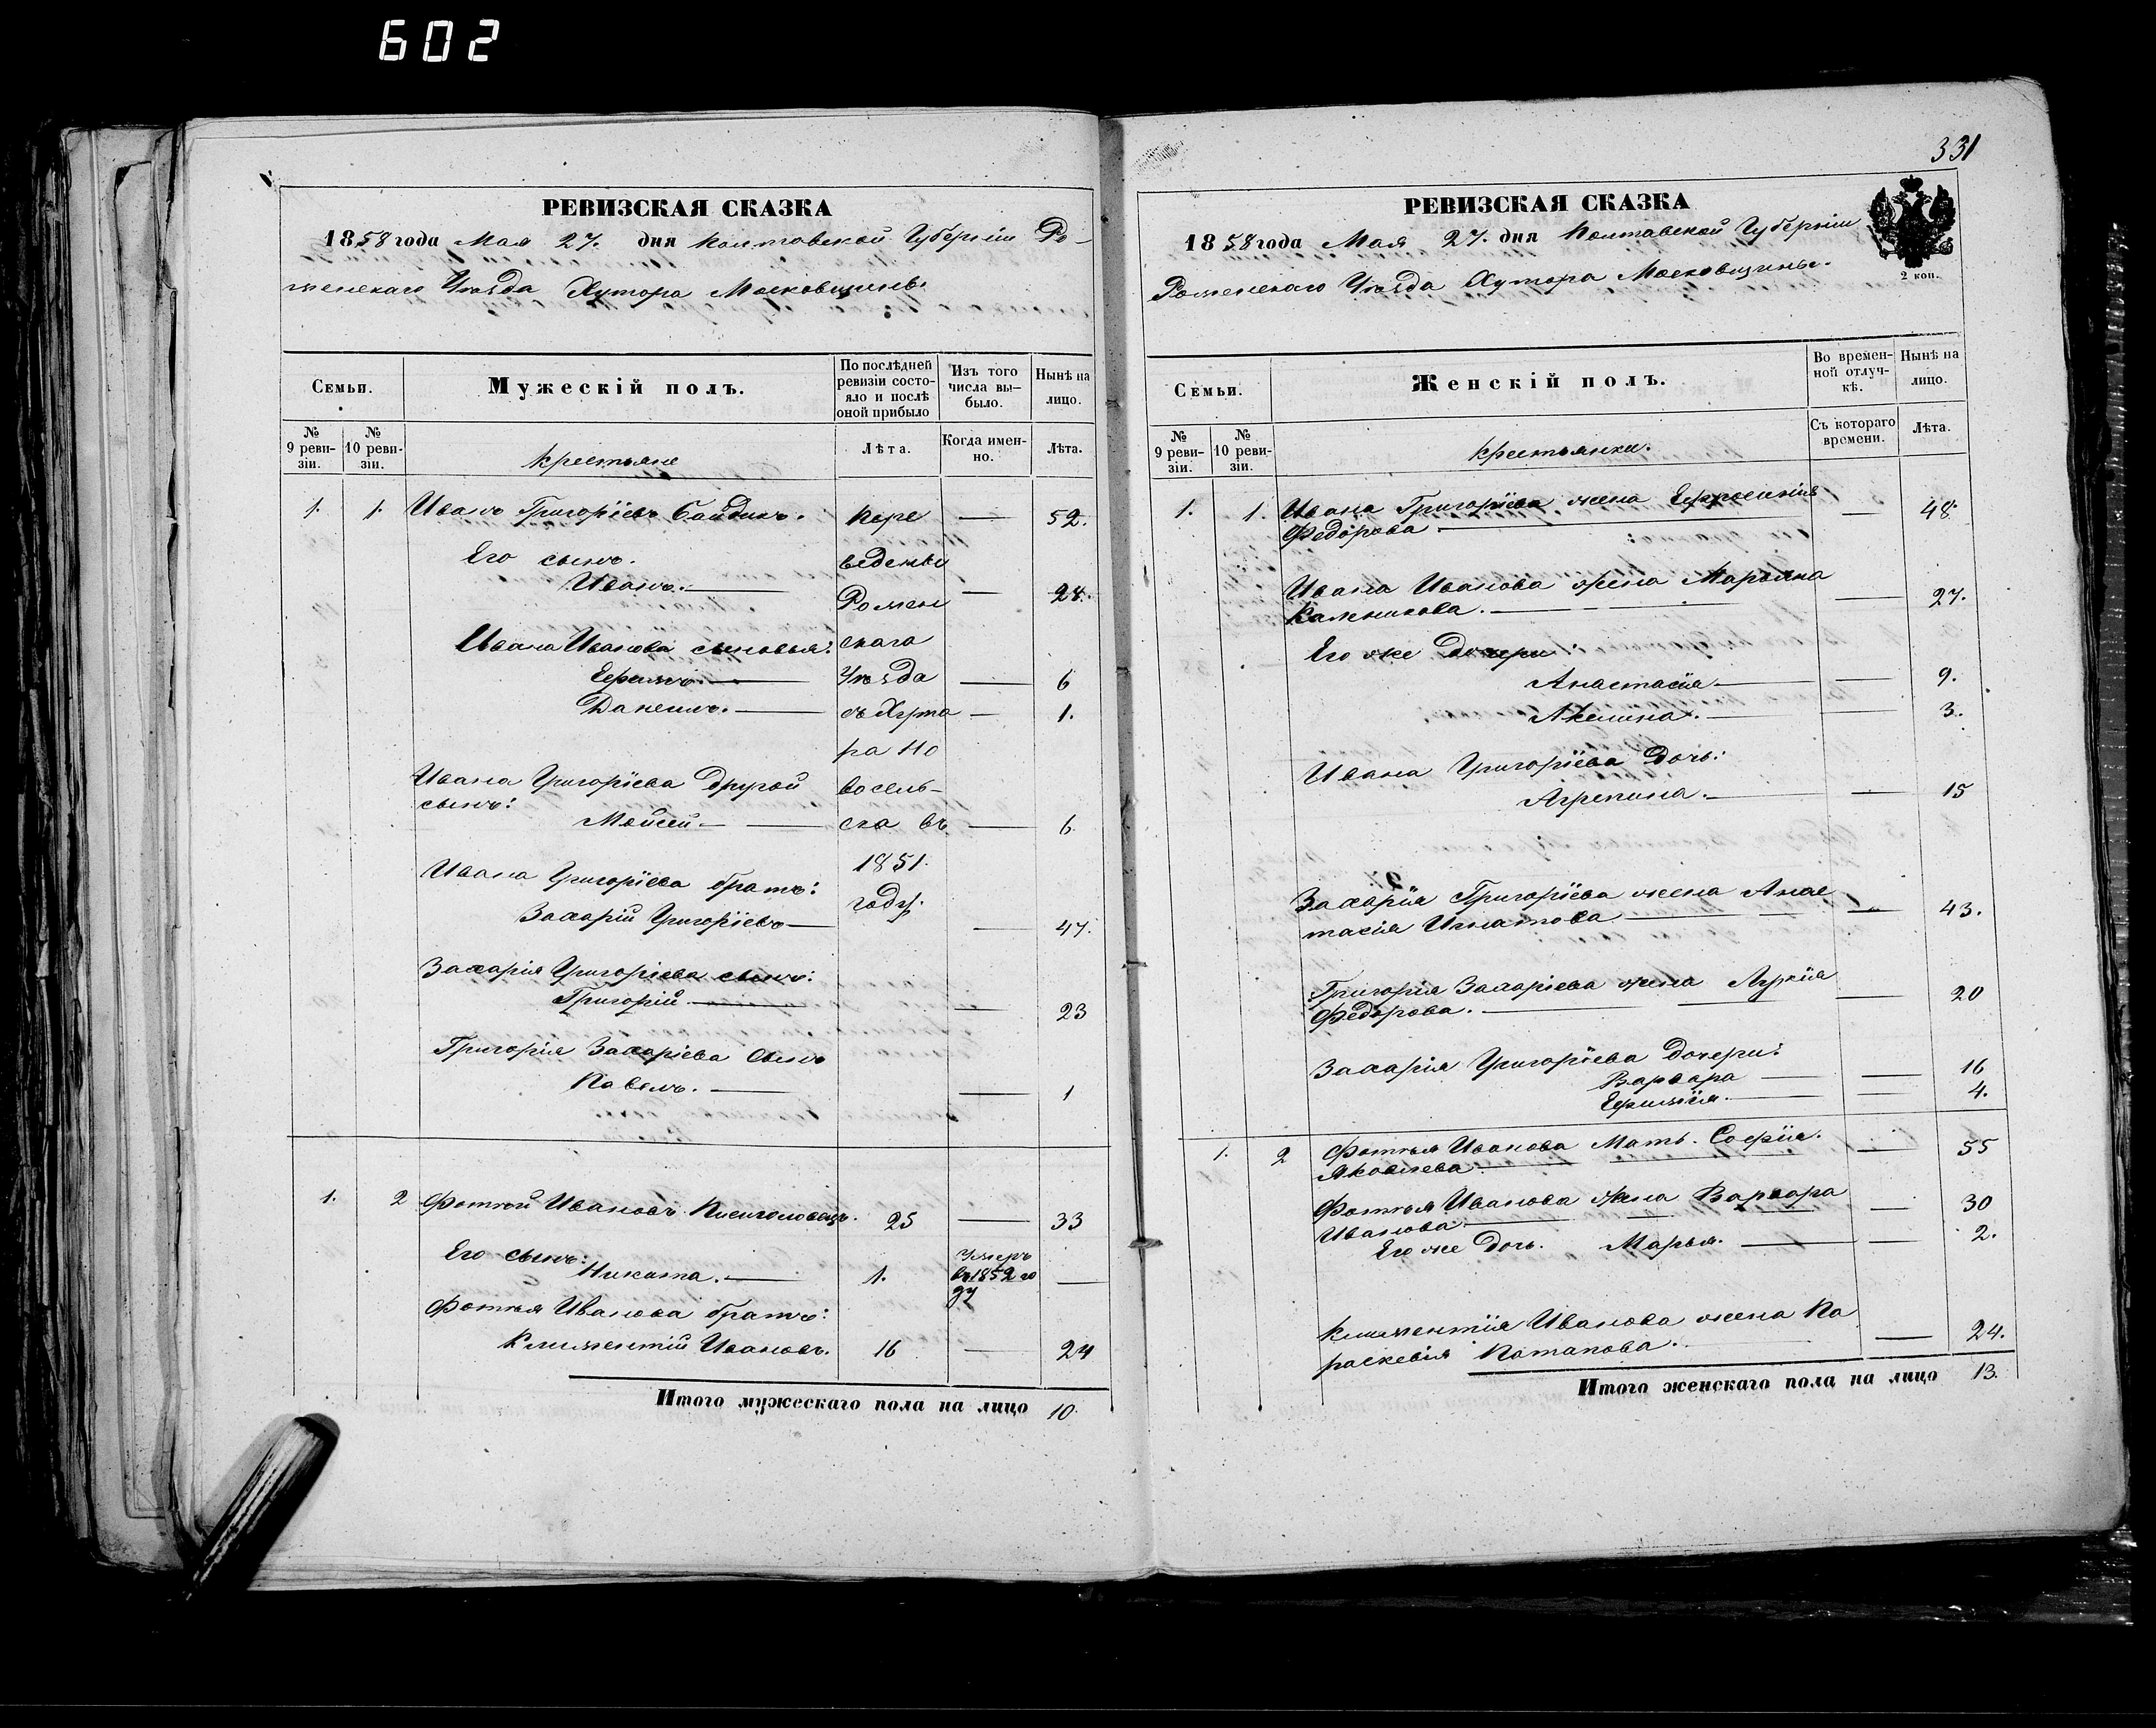 602
РЕВИЗСКАЯ СКАЗКА
1858 года Мая 27. дня Полтавской Губерніи Ро-
менскаго Уѣзда Хутора Московщины.
Семьи.
Мужескій полъ.
По послѣдней ревизіи состояло и послѣ оной прибыло
Изъ того числа вы-было.
Нынѣ на лицо.
№ 9 реви-зіи.
№ 10 реви-зіи.
крестьяне
Лѣта.
Когда имен-но.
Лѣта.
1. 1. Иванъ Григоріевъ Байдакъ. Пере — 52.
Его сынъ. ведены
Иванъ. — Ромен — 28.
Ивана Иванова сыновья: скаго
Ефимъ. — Уѣзда — 6
Данеилъ. — съ Хуто — 1.
ра Но
Ивана Григоріева другой восель-
сынъ:
Мойсей — ска въ — 6.
Ивана Григоріева братъ: 1851.
году.
Захарій Григоріевъ — — 47.
Захарія Григоріева сынъ:
Григорій — — 23
Григорія Захаріева сынъ
Павелъ. — — 1
1. 2 Фотѣй Ивановъ 25 — 33
Его сынъ: Умеръ
Никита. — 1. въ 1852 го —
ду
Фотѣя Иванова братъ:
Климентій Ивановъ. 16 — 24
Итого мужескаго пола на лицо 10.
331
РЕВИЗСКАЯ СКАЗКА
1858 года Мая 27. дня Полтавской Губерніи
Роменскаго Уѣзда Хутора Московщины.
2 коп.
Семьи.
Женскій полъ.
Во времен-ной отлуч-кѣ.
Нынѣ на лицо.
№ 9 реви-зіи.
№ 10 реви-зіи.
крестьянки.
Съ котораго времени.
Лѣта.
1. 1. Ивана Григоріева жена Ефросинія
Федорова — — 48.
Ивана Иванова жена Марьяна
Калникова. — — 27.
Его же дочери:
Анастасія — — 9.
Акелина. — — 3.
Ивана Григоріева дочь:
Агрепина. — — 15
Захарія Григоріева жена Анас
тасія Игнатова — — 43.
Григорія Захаріева жена
Федорова. — — 20
Захарія Григоріева дочери:
Варвара — — 16
Ефимія. — — 4.
1. 2 Фотѣя Иванова Мать. Софія.
Яковлева — — 55
Фотѣя Иванова жена Варвара
Иванова — — 30
Его же дочь. Марья. — — 2.
Климентія Иванова жена Па
раскевія Потапова. — 24.
Итого женскаго пола на лицо 13.